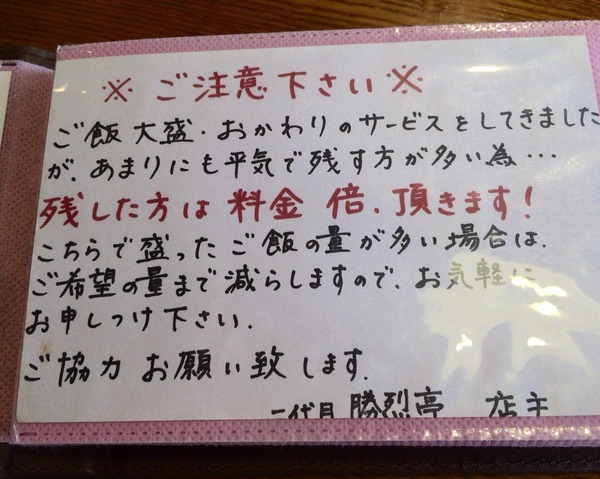 ※ ご注意下さい ※
ご飯大盛・おかわりのサービスをしてきました
が、あまりにも平気で残す方が多い為…
残した方は料金倍、頂きます!
こちらで盛ったご飯の量が多い場合は、
ご希望の量まで減らしますので、お気軽に
お申しつけ下さい.
ご協力お願い致します.
二代目 勝烈亭 店主